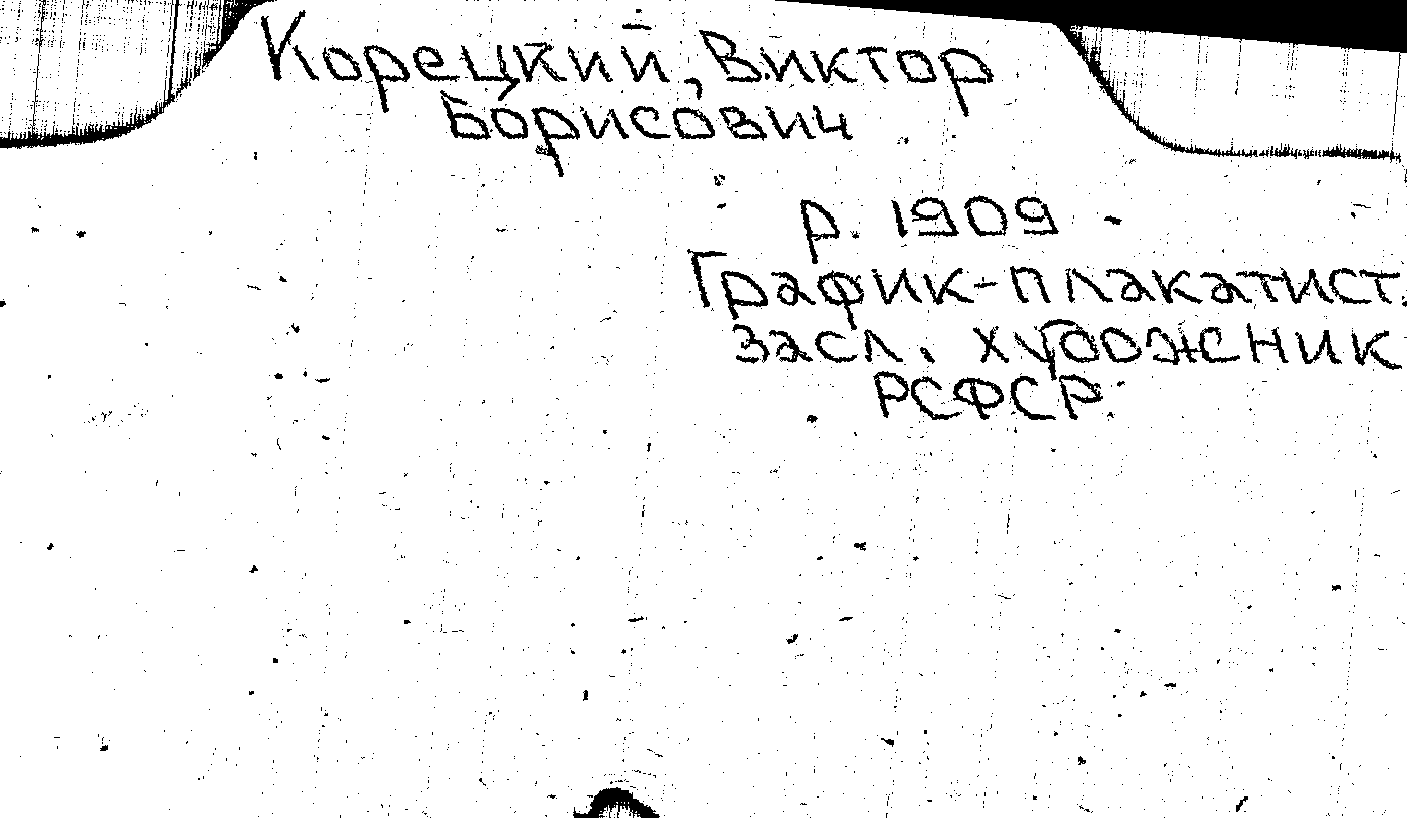 Корецкий, Виктор
Борисович
р. 1909
График-плакатист.
засл. художник
РСФСР.